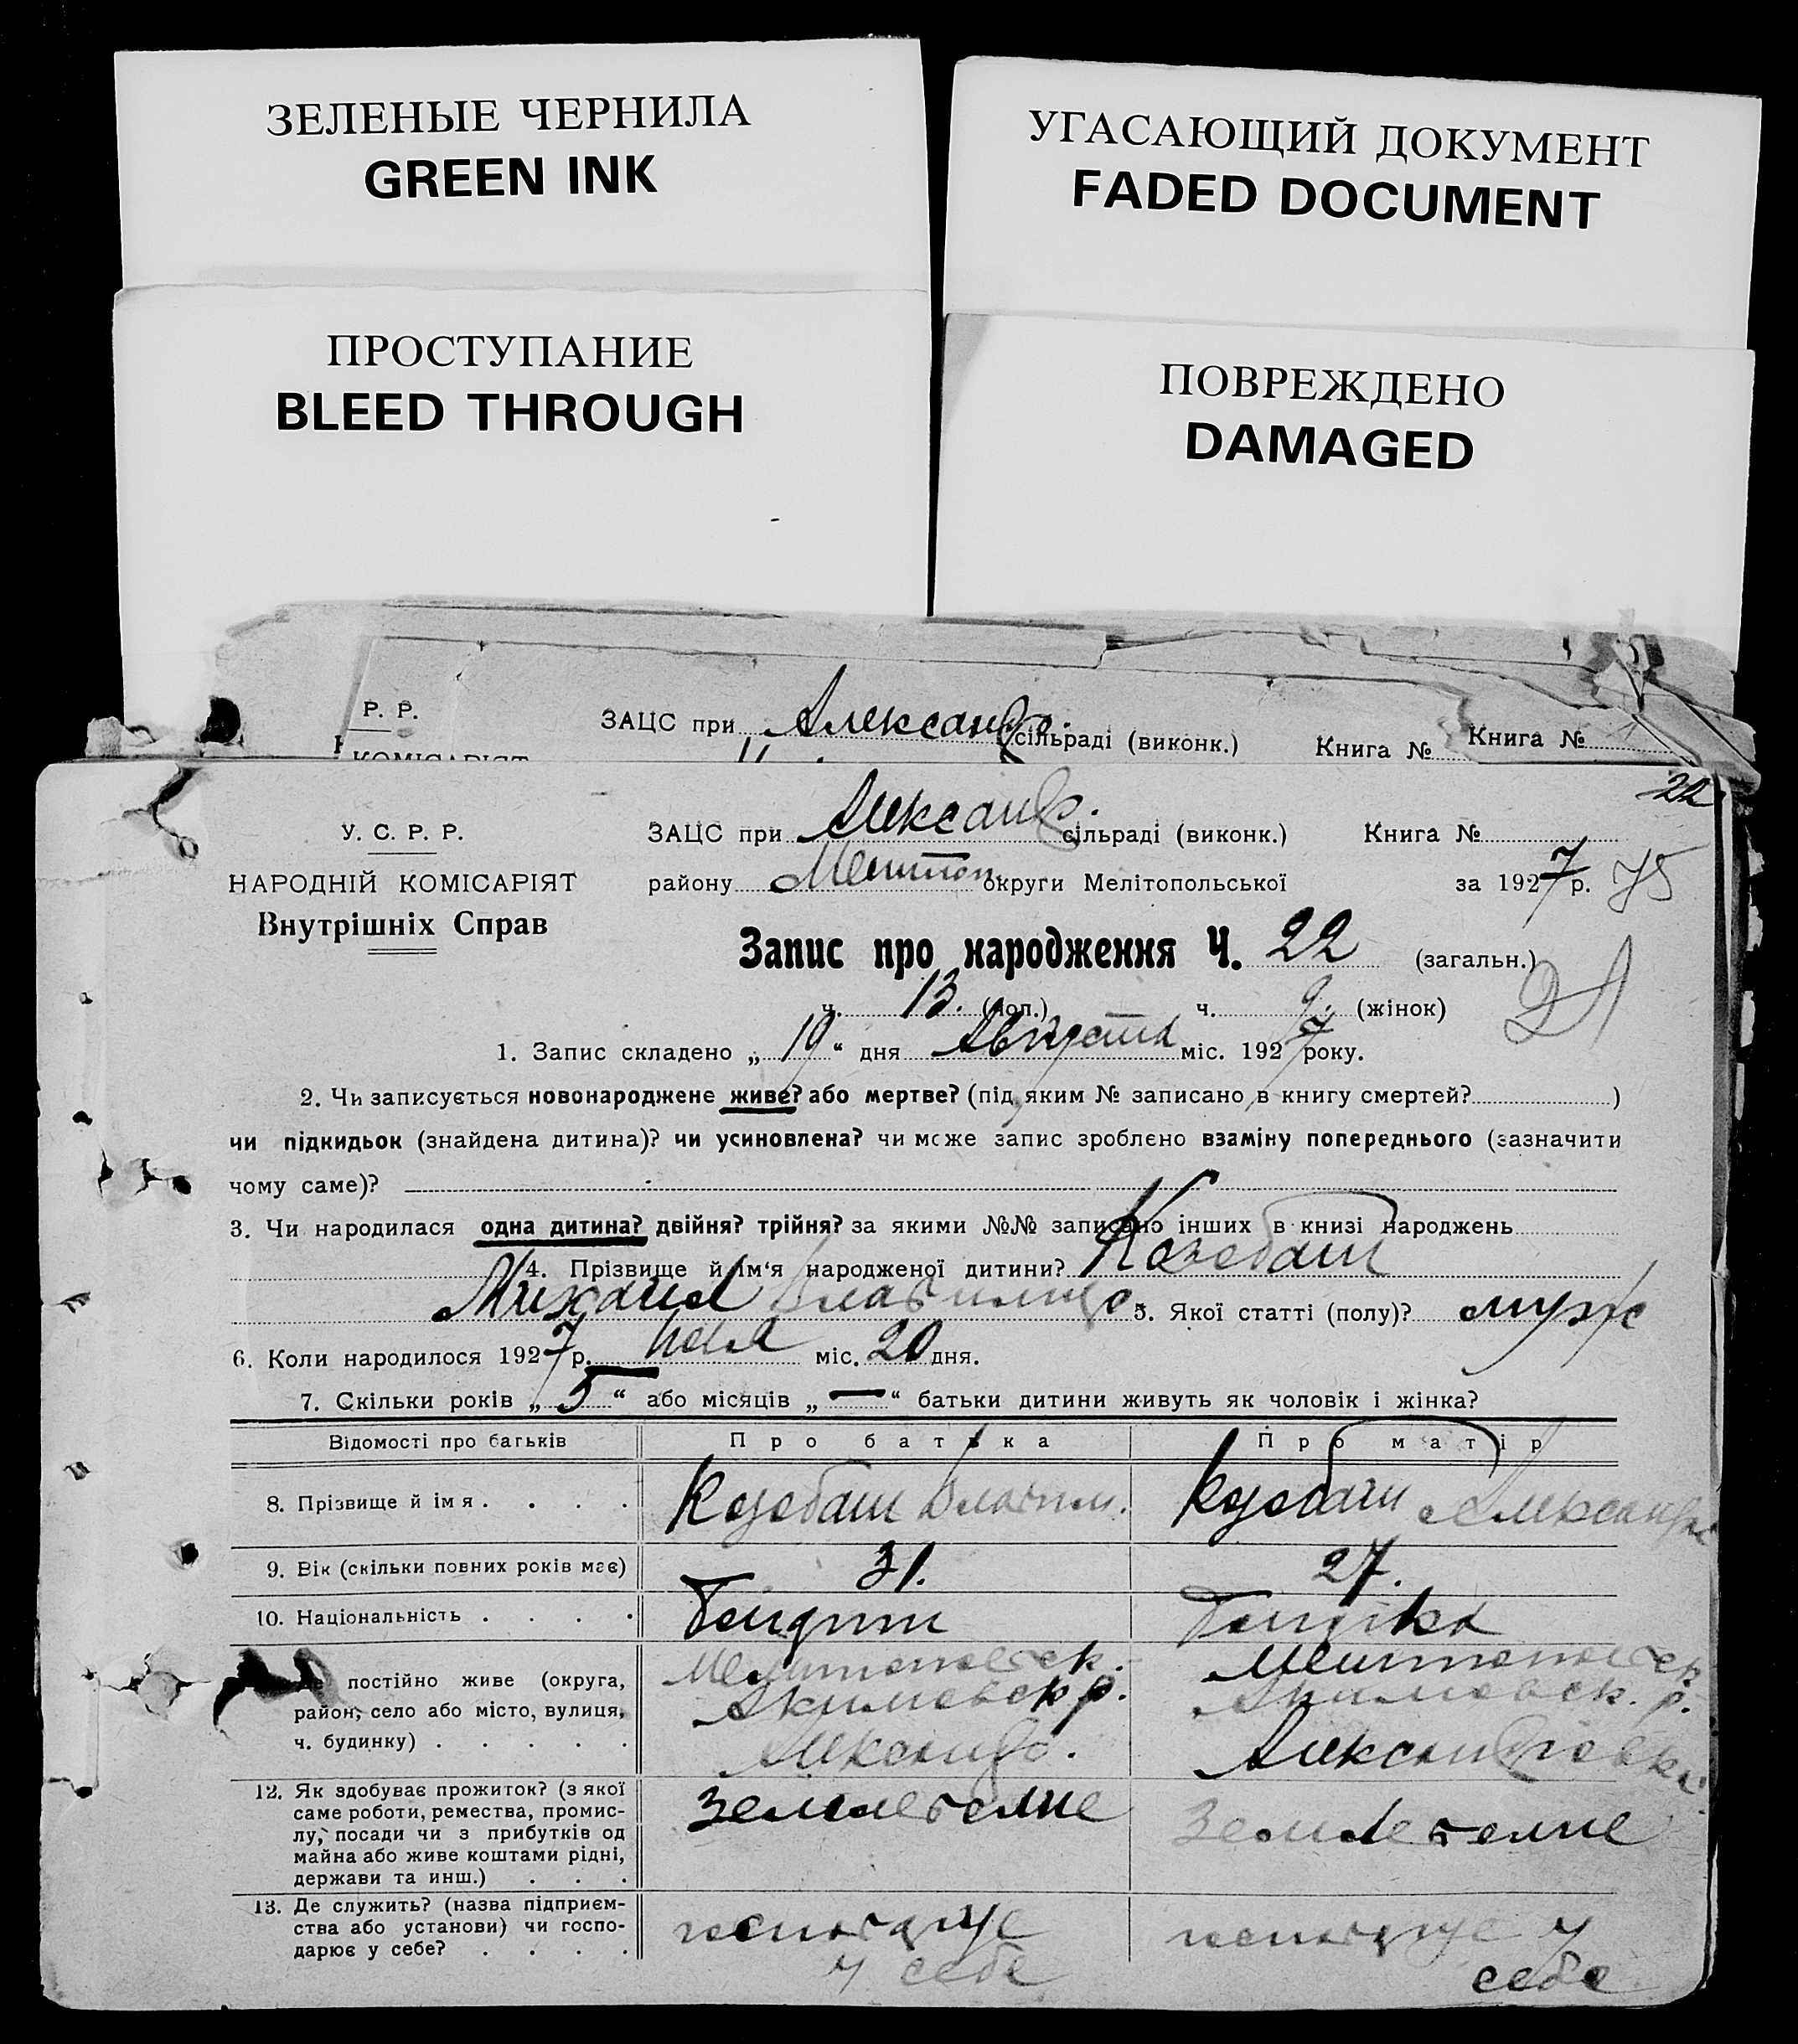 ЗЕЛЕНЫЕ ЧЕРНИЛА
GREEN INK
УГАСАЮЩИЙ ДОКУМЕНТ
FADED DOCUMENT
ПРОСТУПАНИЕ
BLEED THROUGH
ПОВРЕЖДЕНО
DAMAGED
Р. Р. ЗАЦС при Александро. сільраді (виконк.) Книга № Книга №
22
У. С. Р. Р. ЗАЦС при Александр. сільраді (виконк.) Книга №
НАРОДНІЙ КОМІСАРІЯТ району Мелитоп. округи Мелітопольської за 1927 р. 75
Внутрішніх Справ
Запис про народження Ч. 22 (загальн.) 21
ч. 13. (чол.) ч. 9. (жінок)
1. Запис складено „ 19 “ дня Августа міс. 1927 року.
2. Чи записується новонароджене живе? або мертве? (під яким № записано в книгу смертей? )
чи підкидьок (знайдена дитина)? чи усиновлена? чи може запис зроблено взаміну попереднього (зазначити
чому саме)?
3. Чи народилася одна дитина? двійня? трійня? за якими №№ записано інших в книзі народжень
4. Прізвище й ім‘я народженої дитини? Козебаш
Михаил 5. Якої статті (полу)? муж
6. Коли народилося 1927 р. июля міс. 20 дня.
7. Скільки років „ 5 “ або місяців „ — “ батьки дитини живуть як чоловік і жінка?
Відомості про батьків Про батька Про матір
8. Прізвище й імя . . . . Козебаш Владим. Козебаш Александра
9. Вік (скільки повних років має) 31. 27.
10. Національність . . . .
постійно живе (округа, Мелитопольск. Мелитопольск
район, село або місто, вулиця, Акимовск р. Акимовск. р.
ч. будинку) . . . . . Александро. Александровка
12. Як здобуває прожиток? (з якої Земледелие Земледелие
саме роботи, ремества, промис-
лу, посади чи з прибутків од
майна або живе коштами рідні,
держави та инш.) . . .
13. Де служить? (назва підприєм- господарує господарує у
ства або установи) чи госпо- у себе себе
дарює у себе? . . . .